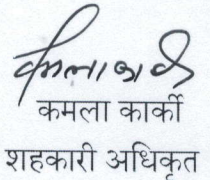 कमला कार्की
कमला कार्की
शहकारी अधिकृत